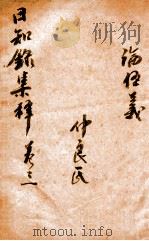 論義
仲良氏
日知錄集釋 卷三
www.mtoou.info